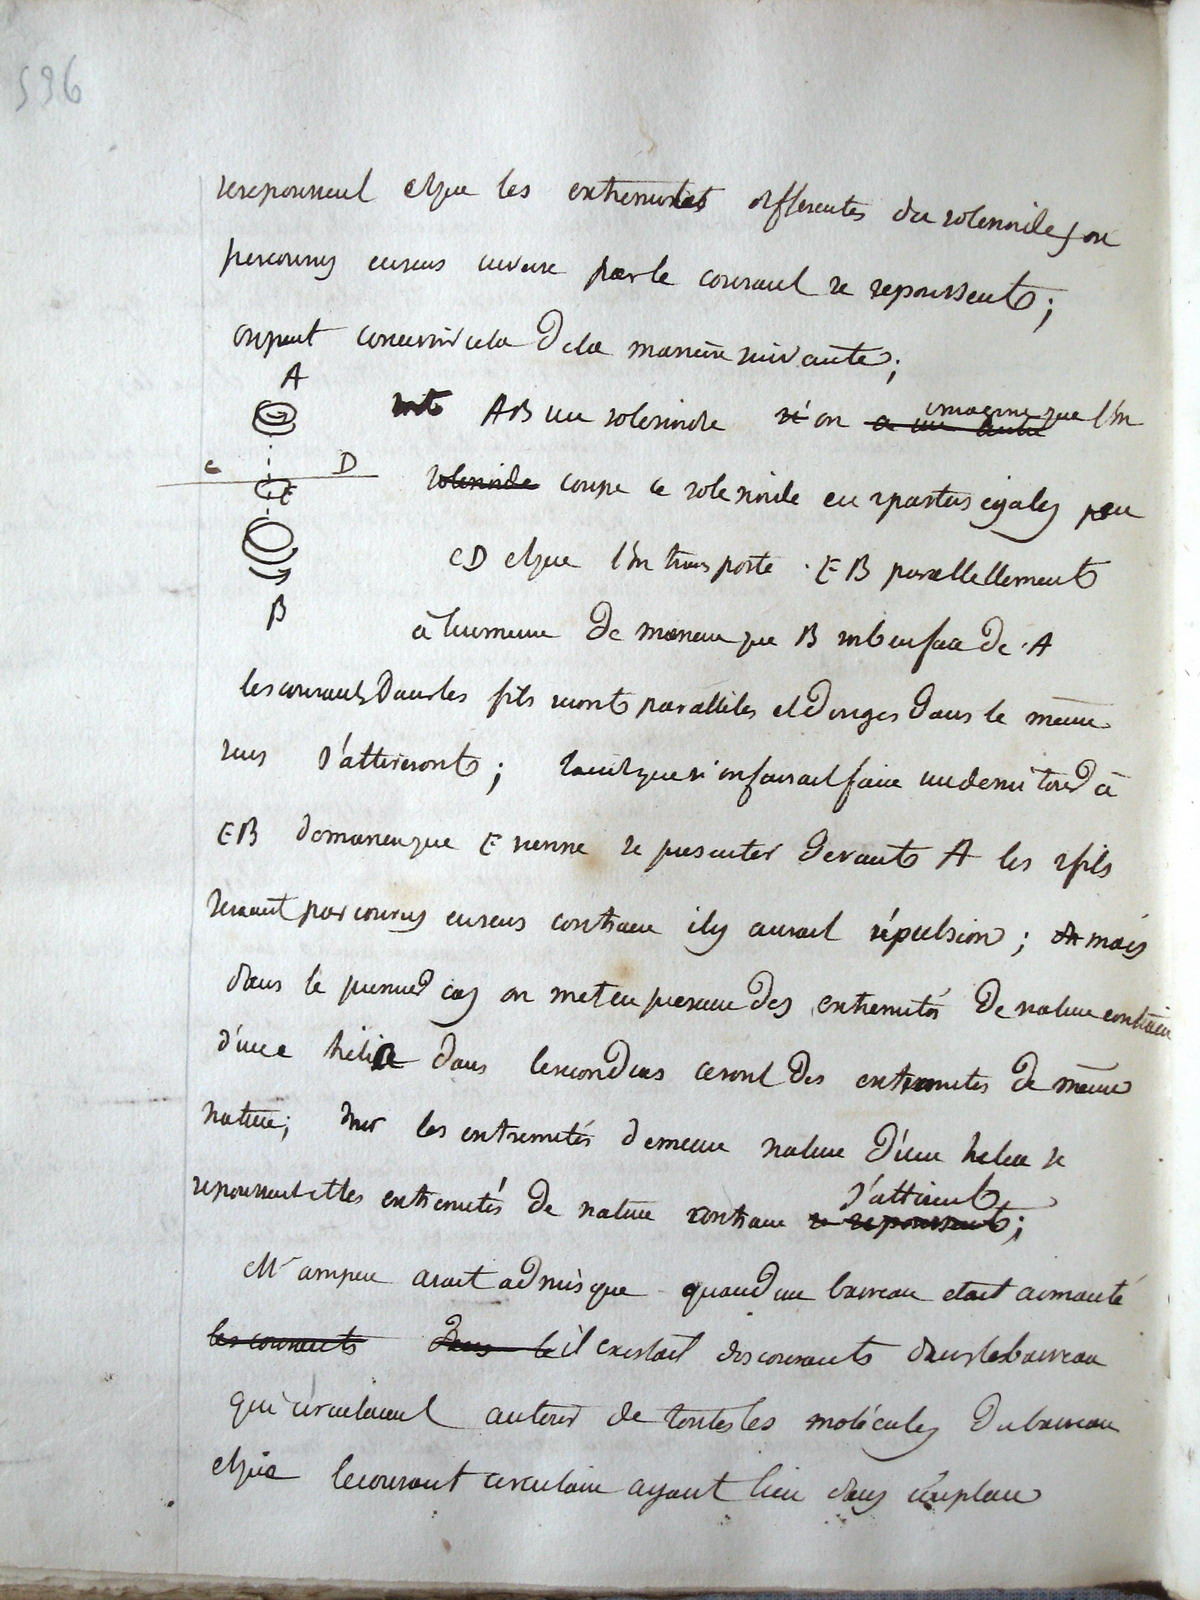 596
se repoussent et que les extremités differentes du solenoide, ou
percourus en sens inverse par le courant se repoussent;
on peut concevoir cela de la manière suivante;
A
AB un solenoide si on imagine que l'on
C D
solenoide coupe ce solenoide en 2 parties egales par
E
CD et que l'on transporte EB parallellement
B
à lui meme de maniere que B soit en face de A
les courants dans les fils seront paralleles et diriges dans le même
sens s'attireront; tandis que si on faisait faire un demi tour à
EB de maniere que E vienne se presenter devant A les 2 fils
seraient parcourus en sens contraire il y aurait répulsion; mais
dans le premier cas on met en presence des extremités de nature contraire
d'une hélice dans le second cas ce sont des extremites de même
nature; les extremités de meme nature d'une helice se
repoussent et les extremités de nature contraire s'attirent
se repoussent;
Mr ampere avait admis que quand un barreau etait aimanté
les courants dans le il existait des courants dans le barreau
qui circulaient autour de toutes les molécules du barreau
et que le courant circulaire ayant lieu dans un plan